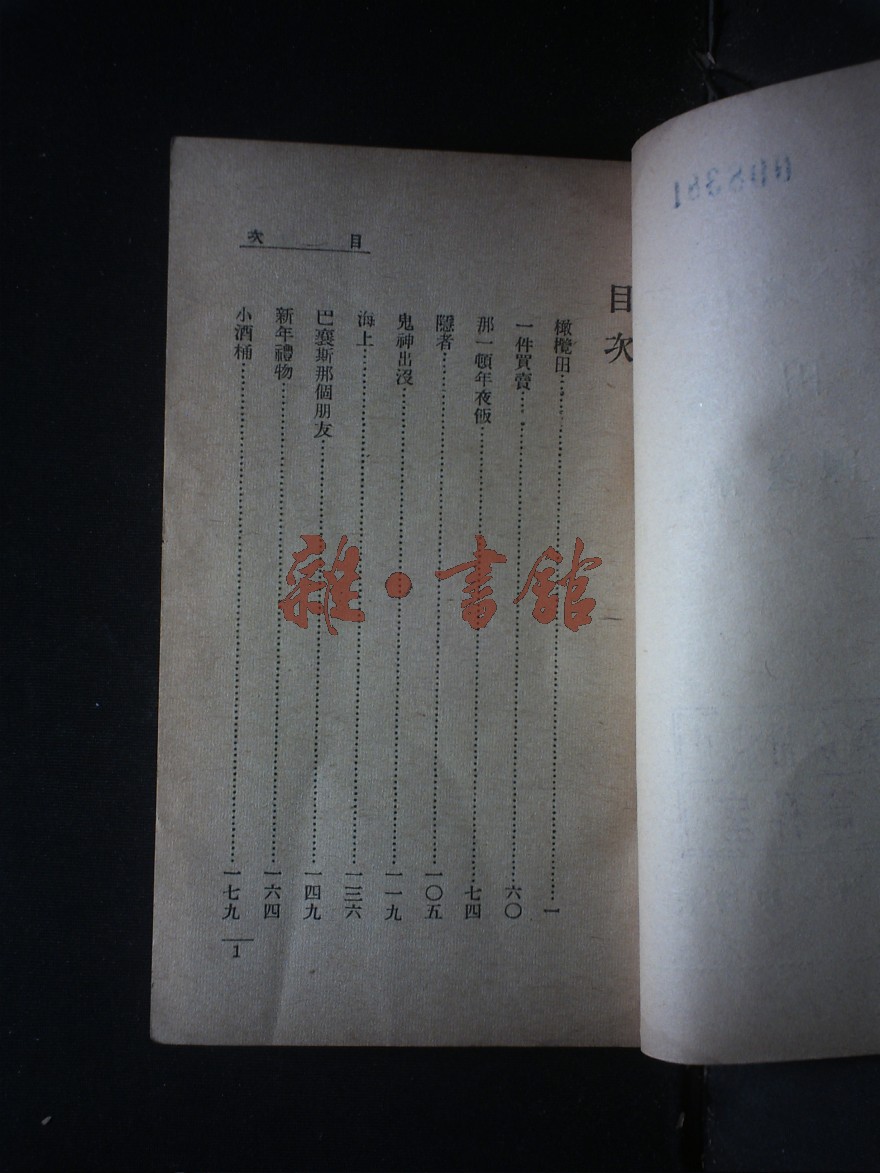 目次
目次
橄欖田……一
一件買賣……六〇
那一頓年夜飯……七四
隱者……一〇五
鬼神出沒……一一九
海上……一三六
巴襄斯那個朋友……一四九
新年禮物……一六四
小酒桶……一七九
1
雜·書館